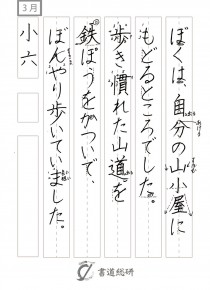 3月
ぼくは、自分の山小屋に
もどるところでした。
歩き慣れた山道を
鉄ぽうをかついで、
ぼんやり歩いていました。
小六
書道総研